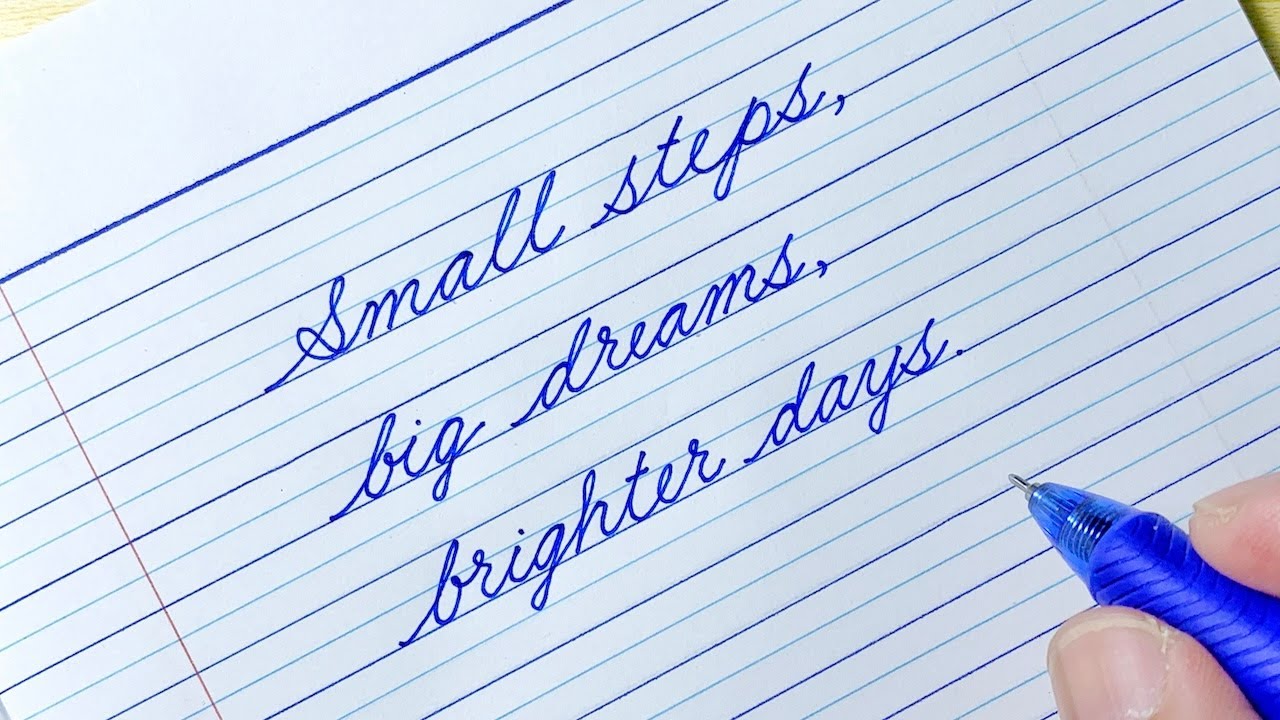 Small steps,
big dreams,
brighter days.